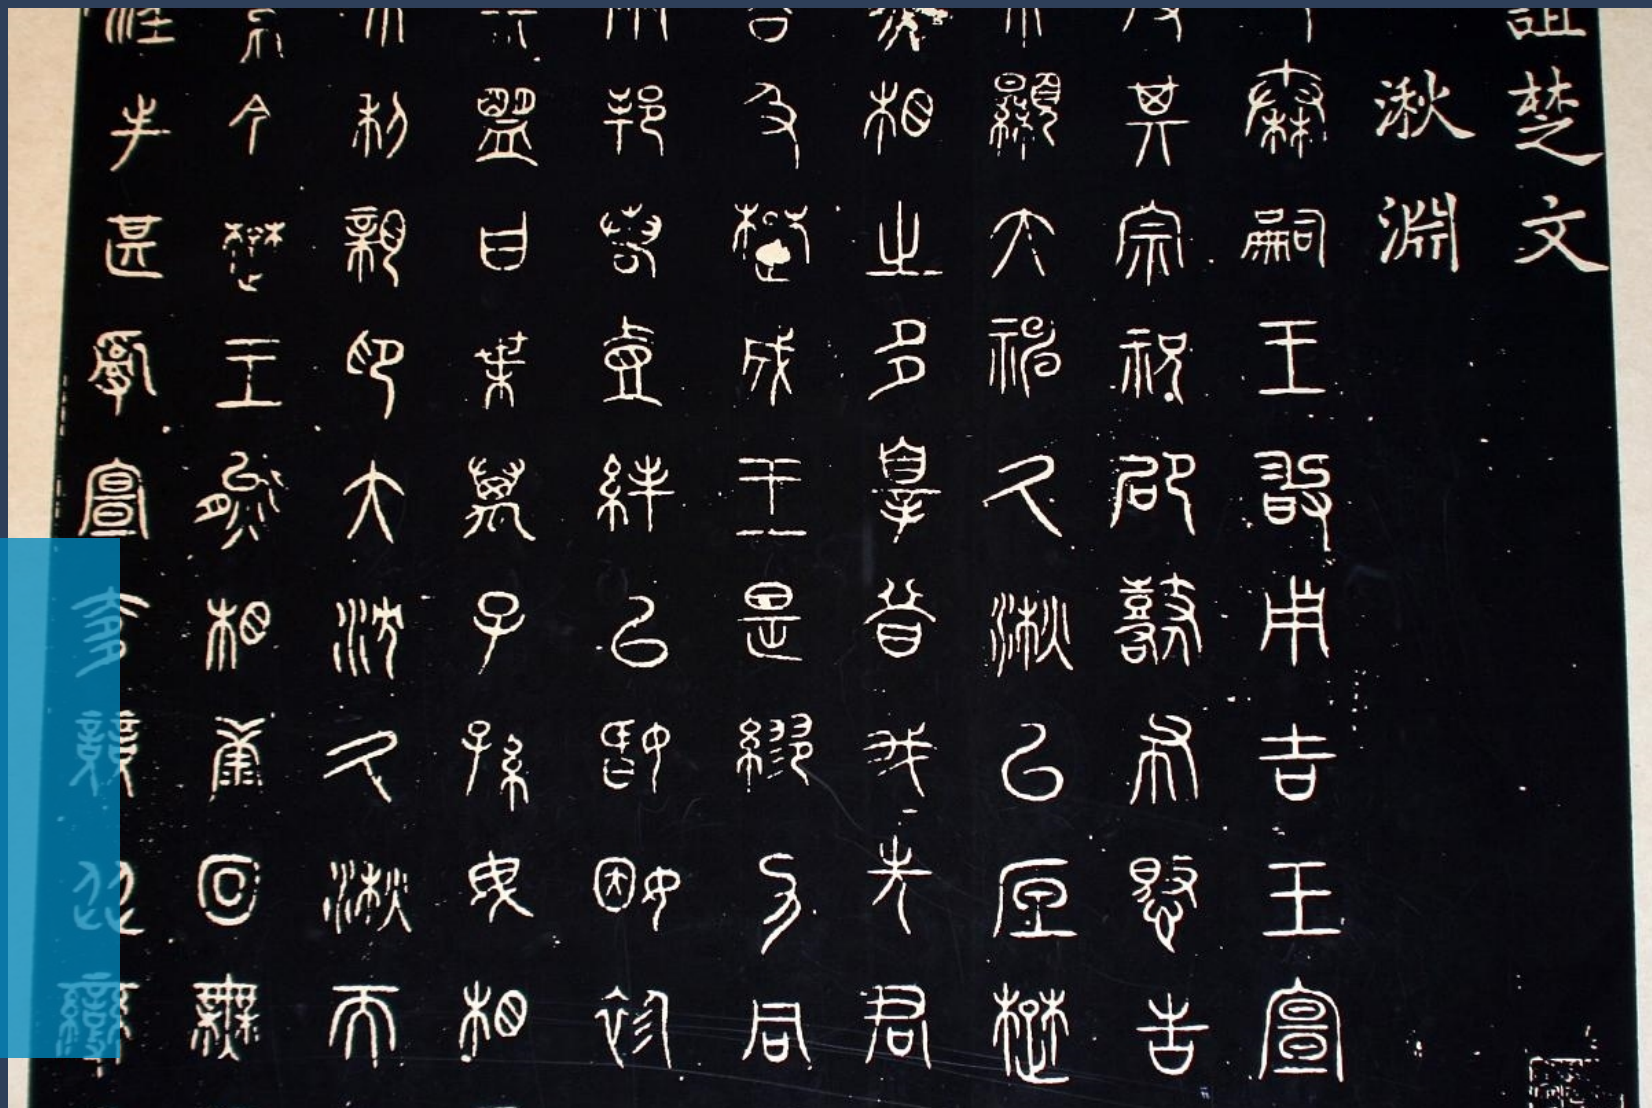 詛楚文
湫淵
秦嗣王敢用吉玉宣
其宗祝邵鼛布憝告
顯大神厥湫以底楚
相之多辠昔我先君
及楚成王是繆力同
邦若壹絆以婚姻袗
盟曰枼萬子孫毋相
利親卬大沈厥湫而
今楚王熊相康回無
淫失甚亂宣侈競從變